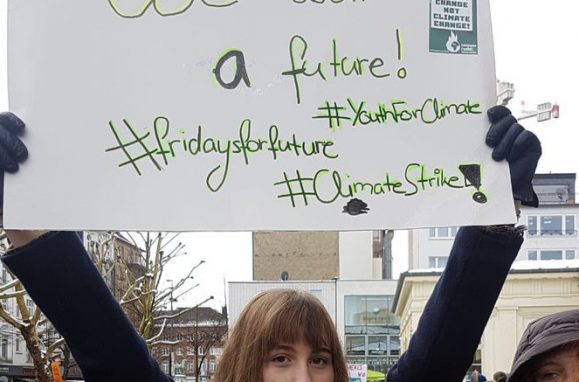 We
a future!
#YouthForClimate
#fridaysforfuture
#ClimateStrike!
CHANGE
NOT
CLIMATE
CHANGE!